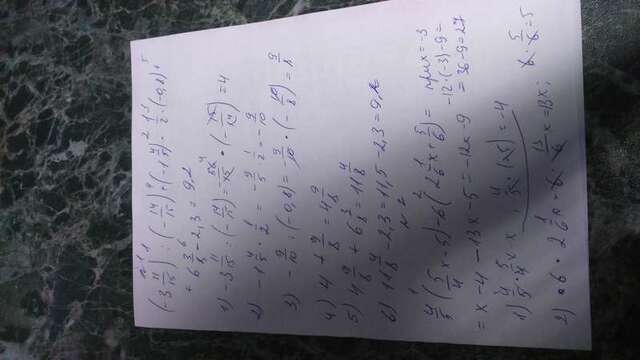 N 1
(-3 11/15) : (-14/15) + (-1 4/5) · 1/2 : (-0,8) +
+ 6 3/8 - 2,3 = 9,2
1) -3 11/15 : (-14/15) = -56/15 · (-15/14) = 4
2) -1 4/5 · 1/2 = -9/5 · 1/2 = -9/10
3) -9/10 : (-0,8) = 9/10 · (-10/8) = 9/8
4) 4 + 9/8 = 4 9/8
5) 4 9/8 + 6 3/8 = 11 4/8
6) 11 4/8 - 2,3 = 11,5 - 2,3 = 9,2
N 2
4/5 (5/4 x - 5) - 6 (2 1/6 x + 5/6) = при x = -3
= x - 4 - 13x - 5 = -12x - 9 -12·(-3) - 9 =
= 36 - 9 = 27
1) 4/5 · 5/4 = x ; 4/5 · (-5) = -4
2) 6 · 2 1/6 x = 6 · 13/6 x = 13x; 6 · 5/6 = 5